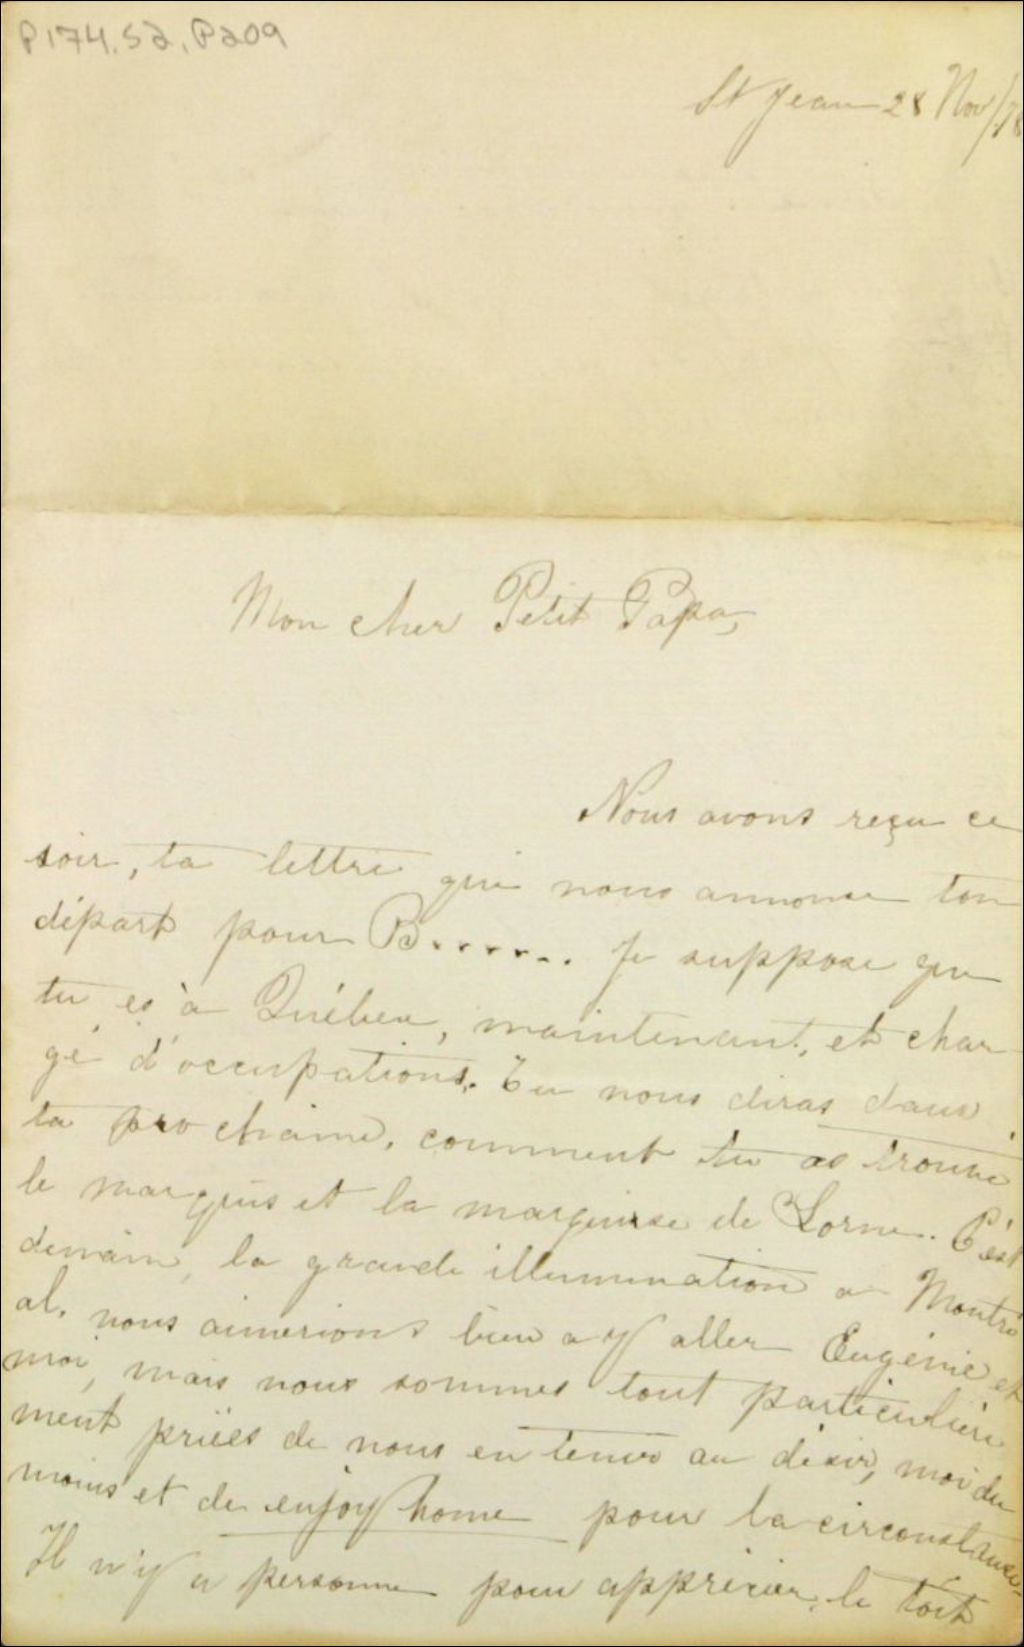 P174,S2,P209
St Jean 28 Nov/78
Mon cher Petit Papa,
Nous avons reçu ce
soir, ta lettre qui nous annonce ton
départ pour B....... Je suppose que
tu es à Québec, maintenant, et char
gé d'occupations. Tu nous diras dans
ta prochaine, comment tu as trouvé
le marquis et la marquise de Lorne. C'est
demain, la grande illumination a Montré
al. nous aimerions bien a y aller Eugénie et
moi, mais nous sommes tout particulière
ment priées de nous en tenir au désir, moi du
moins et de enjoy home pour la circonstance.
Il n'y a personne pour apprécier, le toit